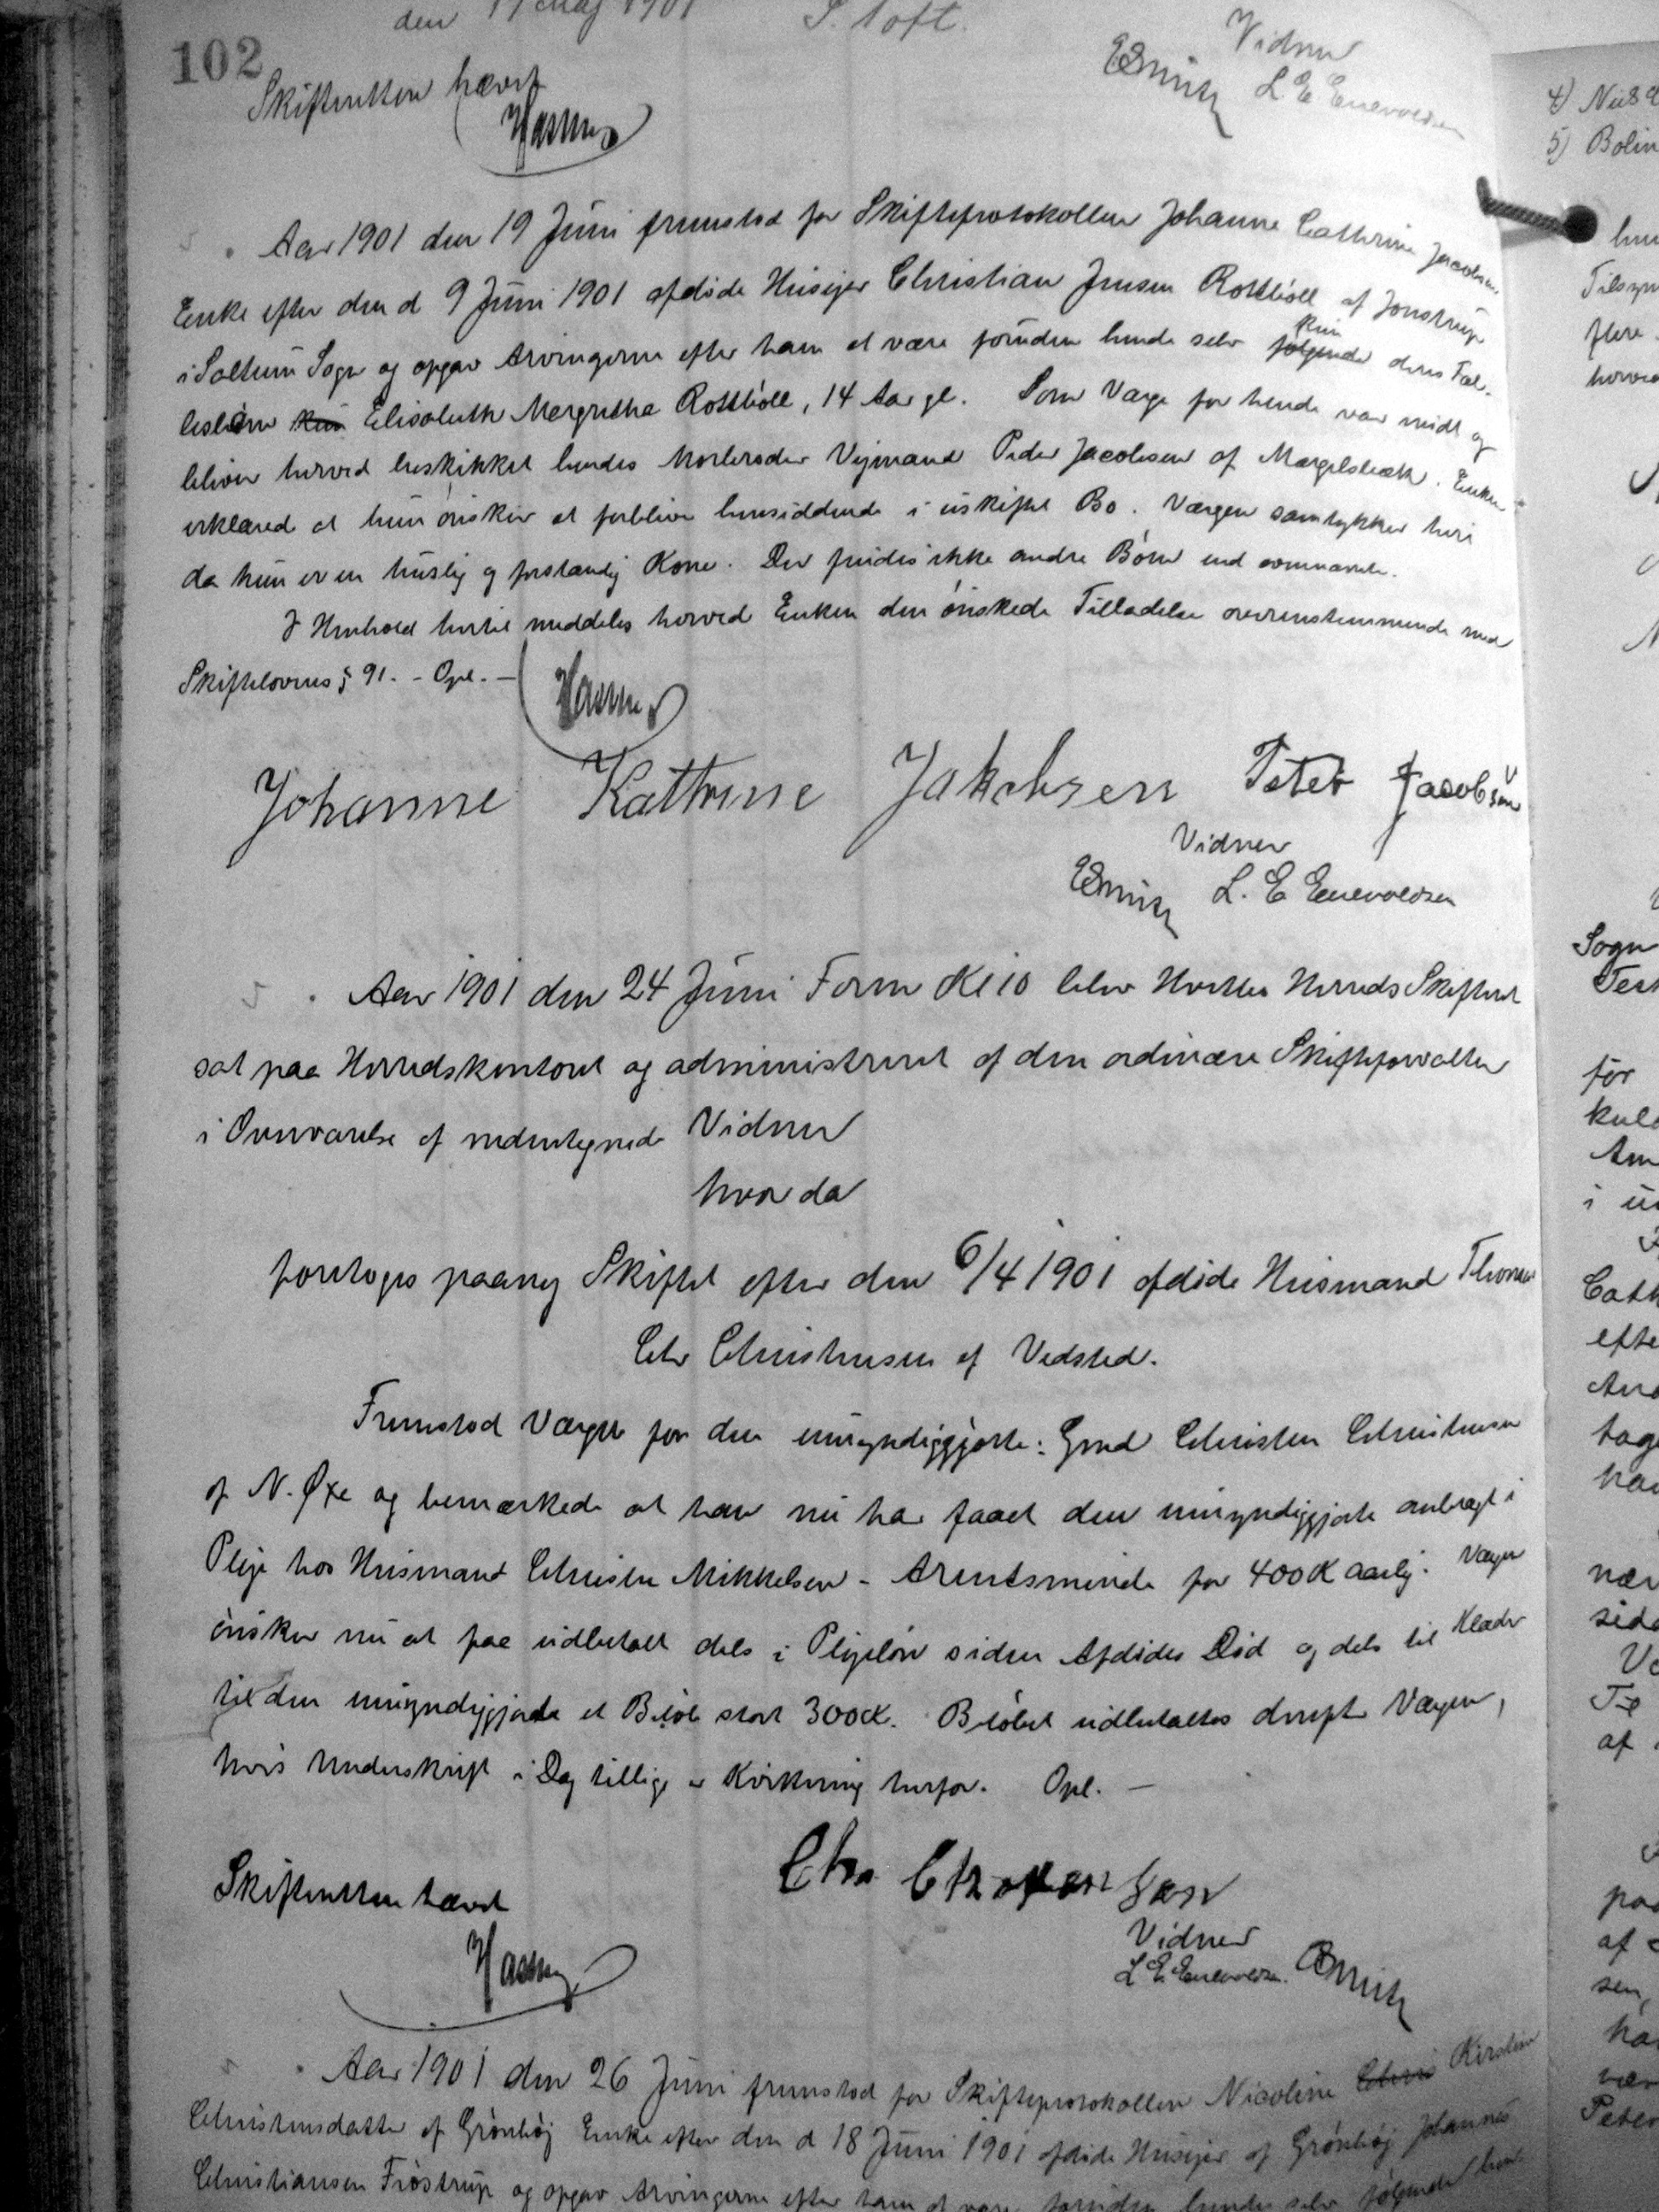 102
den 19 Maj 1901 S. toft.
Vidner
L E Enevoldsen
Skifteretten hævet
Aar 1901 den 19 Juni fremstod for Skifteprotokollen Johanne Cathrine Jacobsen
Enke efter den d 9 Juni 1901 afdøde Husejer Christian Jensen Rottbøll af Jonstrup
i Saltum Sogn og opgav Arvingerne efter ham at være foruden hende selv følgende kun deres Fæl-
lesbarn kun Elisabeth Margrethe Rottbøll, 14 Aar gl. Som Værge for hende var mødt og
bliver herved beskikket hendes Morbroder Vejmand Peder Jacobsen af Mærgelsbæk. Enken
erklæred at hun ønsker at forblive hensiddende i uskiftet Bo. Værgen samtykker heri
da hun er en huslig og forstandig Kone. Der findes ikke andre Børn end ovennævnte.
I Henhold hertil meddeles herved Enken den ønskede Tilladelse overensstemmende med
Skiftelovens § 91. - Opl. -
Johanne Kathrine Jakobsen Peter Jacobsen
Vidner
L. E Enevoldsen
Aar 1901 den 24 Juni Form Kl 10 blev Hvetbo Herreds Skifteret
sat paa Herredskontoret og administreret af den ordinære Skifteforvalter
i Overværelse af undertegnede Vidner
hvor da
foretoges paany Skiftet efter den 6/4 1901 afdøde Husmand Thomas
Chr Christensen af Vedsted.
Fremstod Værgen for den umyndiggjorte: Grmd Christen Christensen
af N. Øxe og bemærkede at han nu har faaet den umyndiggjorte anbragt i
Pleje hos Husmand Christen Mikkelsen - Arentsminde for 400 K aarlig. Værgen
ønsker nu at faa udbetalt dels i Plejeløn siden Afdødes Død og dels til Klæder
til den umyndiggjorte et Beløb stort 300 K. Beløbet udbetaltes derefter Værgen,
hvis Underskrift i Dag tillige er Kvittering herfor. Opl. -
Skifteretten hævet
Vidner
L E Enevoldsen.
Aar 1901 den 26 Juni fremstod for Skifteprotokollen Nicoline Chris Kirstine
Christensdatter af Grønhøj Enke efter den d 18 Juni 1901 afdøde Husejer af Grønhøj Johannes
Christiansen Frøstrup og opgav Arvingerne efter ham at være foruden hende selv følgende
4)
5)
Sogn
før
i
efte
tage
hav
nær
side
af
paa
af
sen,
Peter